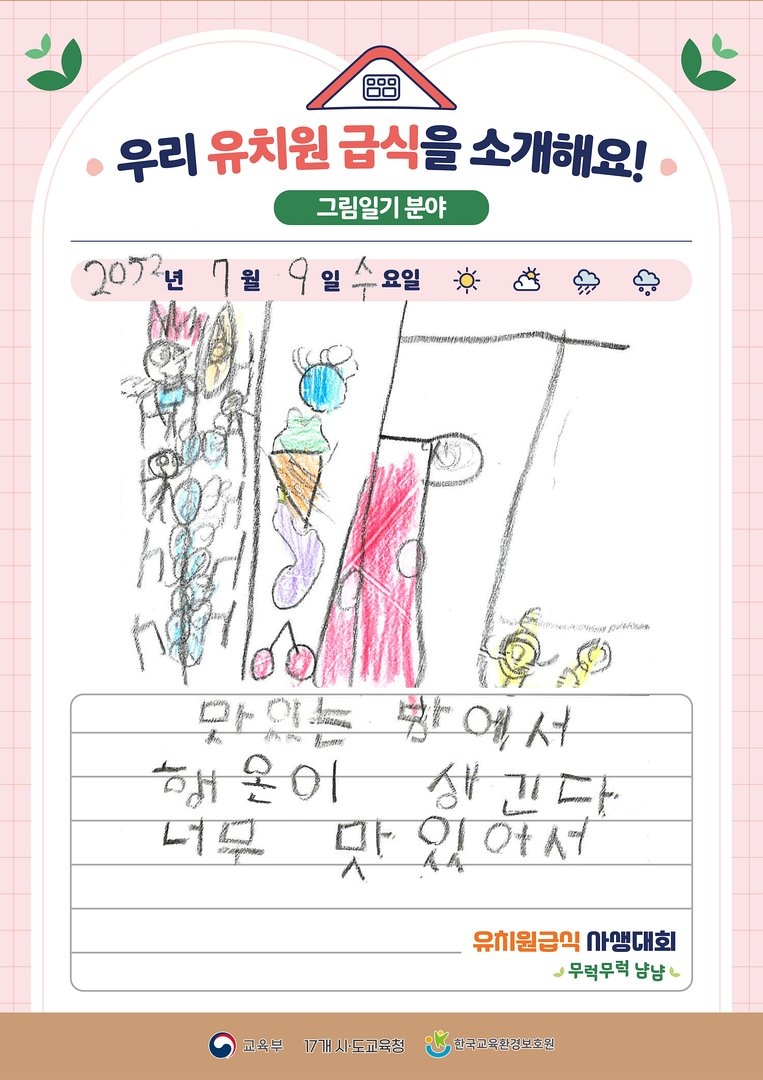 우리 유치원 급식을 소개해요!
그림일기 분야
2052년 7월 9일 수요일
맛있는
너무 맛있어서
유치원급식 사생대회
무럭무럭 냠냠
교육부 17개 시·도교육청 한국교육환경보호원